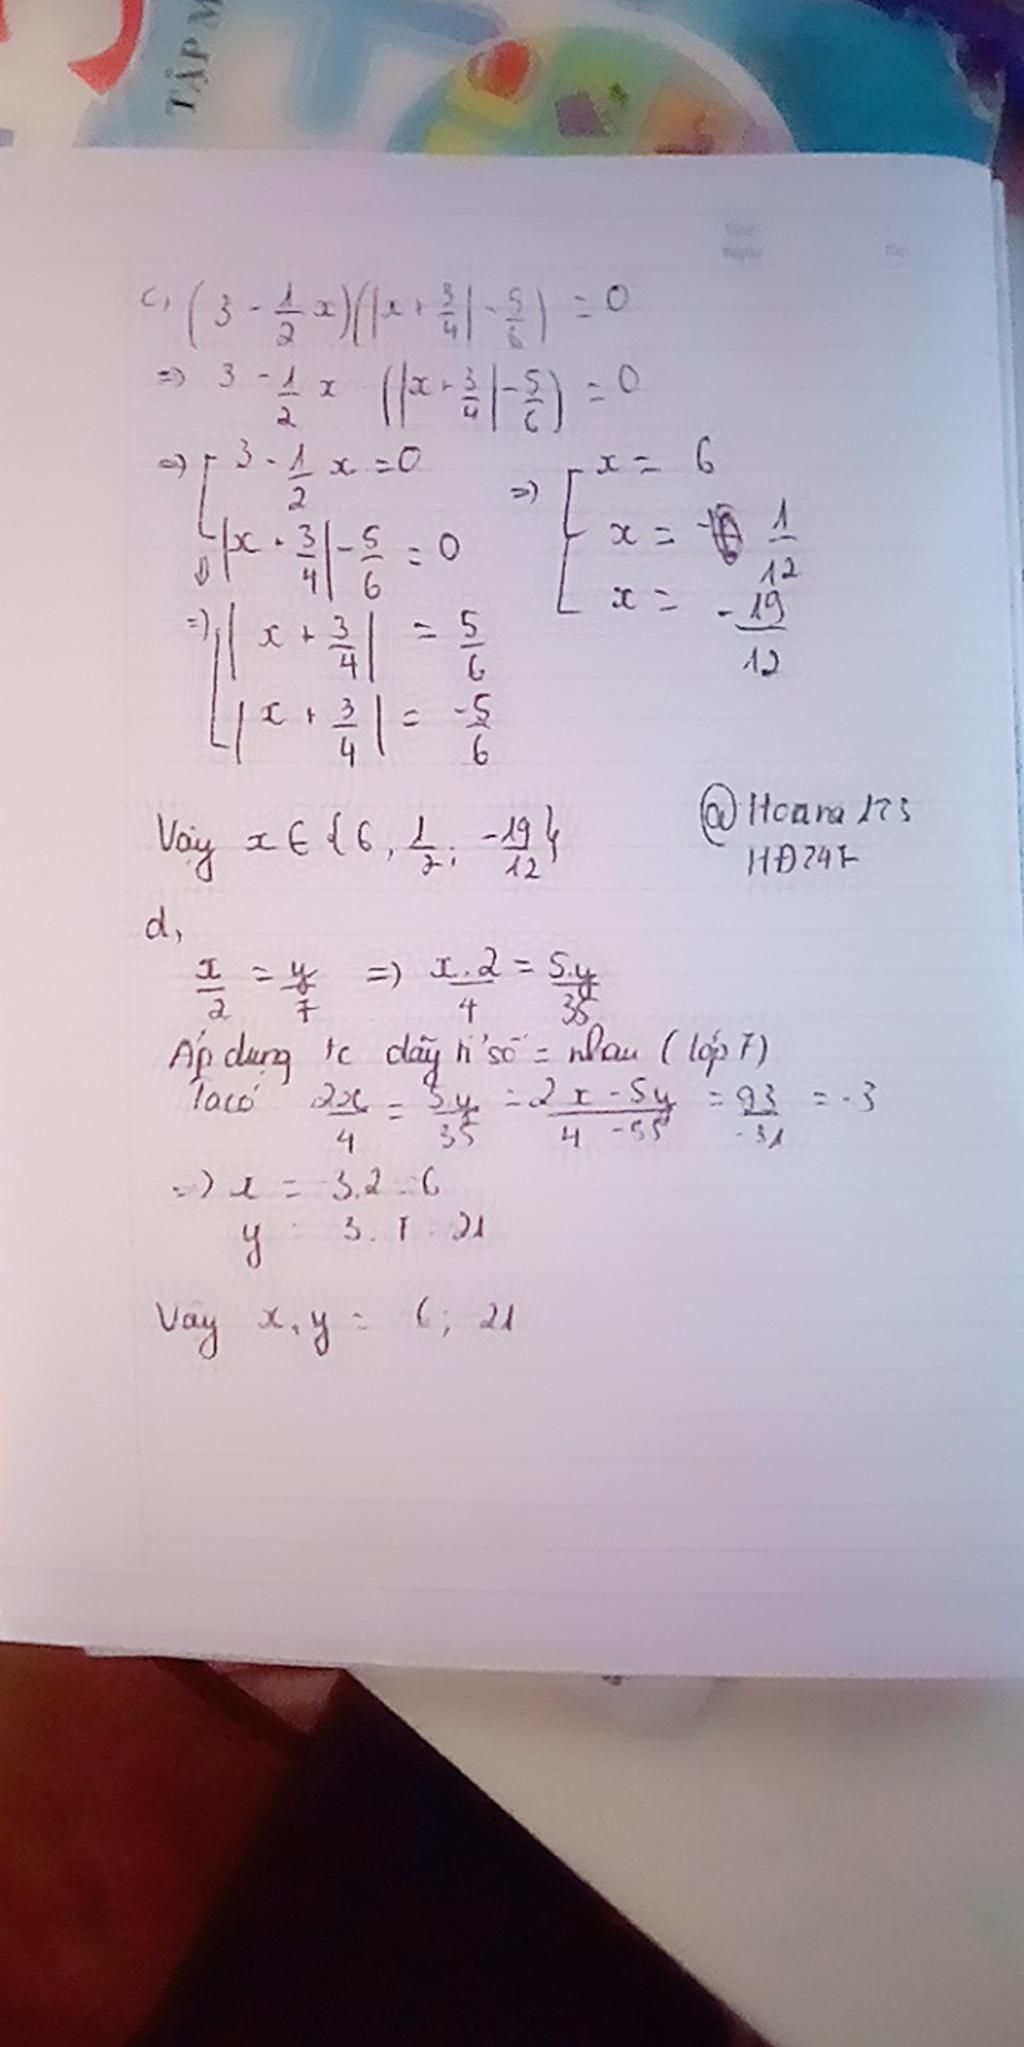 TẬP M
c, (3 - 1/2 x)(|x + 3/4| - 5/6) = 0
=> 3 - 1/2 x (|x + 3/4| - 5/6) = 0
=> [ 3 - 1/2 x = 0
|x + 3/4| - 5/6 = 0
=> [ |x + 3/4| = 5/6
|x + 3/4| = -5/6
=> [ x = 6
x = 1/12
x = -19/12
Vậy x ∈ {6, 1/2; -19/12}
@Hoana123
HĐ247
d,
x/2 = y/7 => x.2/4 = 5.y/35
Áp dụng tc dãy tỉ số = nhau (lớp 7)
Ta có 2x/4 = 5y/35 = 2x - 5y/4 - 35 = 93/-31 = -3
=> x = 3.2 = 6
y = 3.7 = 21
Vậy x, y = 6; 21